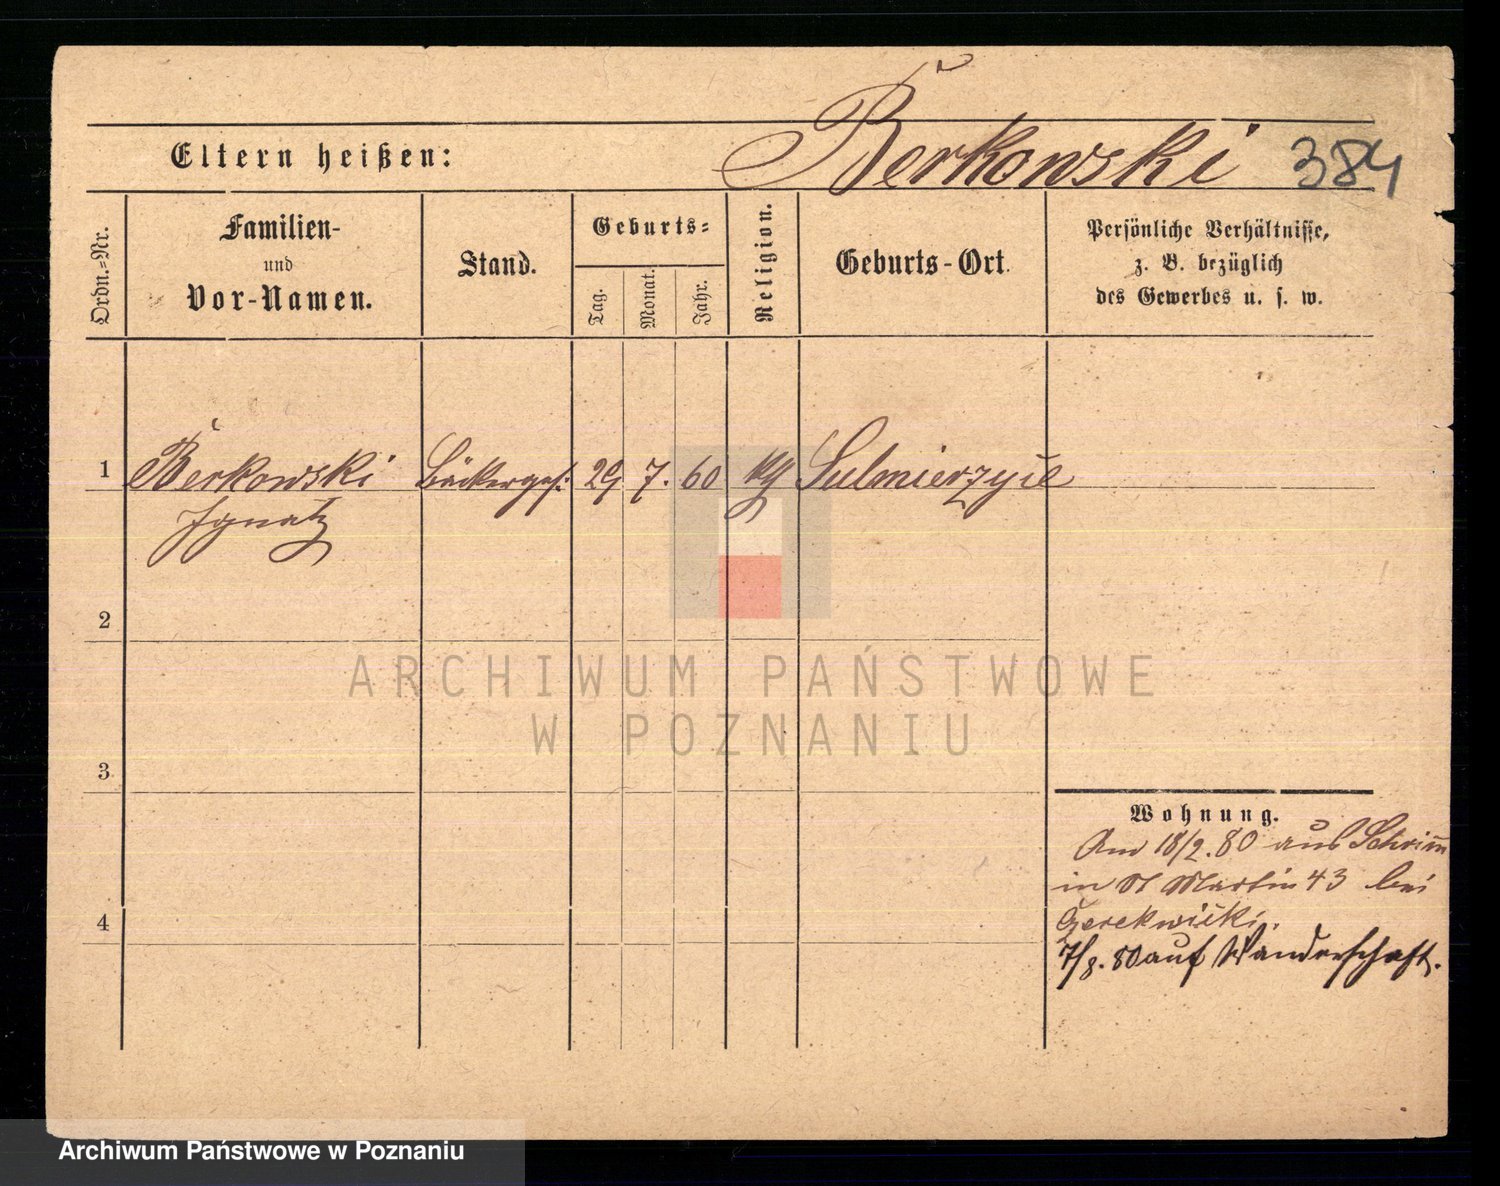 Berkowski 384
Eltern heißen:
Ordn.=Nr.
Familien-
und
Vor-Namen.
Stand.
Geburts=
Tag.
Monat.
Jahr.
Religion.
Geburts-Ort.
Persönliche Verhältnisse,
z. B. bezüglich
des Gewerbes u. s. w.
1 Berkowski Bäckerges: 29 7. 60 Sulmierzyce
Ignatz
2
ARCHIWUM PAŃSTWOWE
W POZNANIU
3
Wohnung.
Am 18/2. 80 aus Schrim̄
in St Martin 43 bei
4
7/8. 80 auf Wanderschaft.
Archiwum Państwowe w Poznaniu